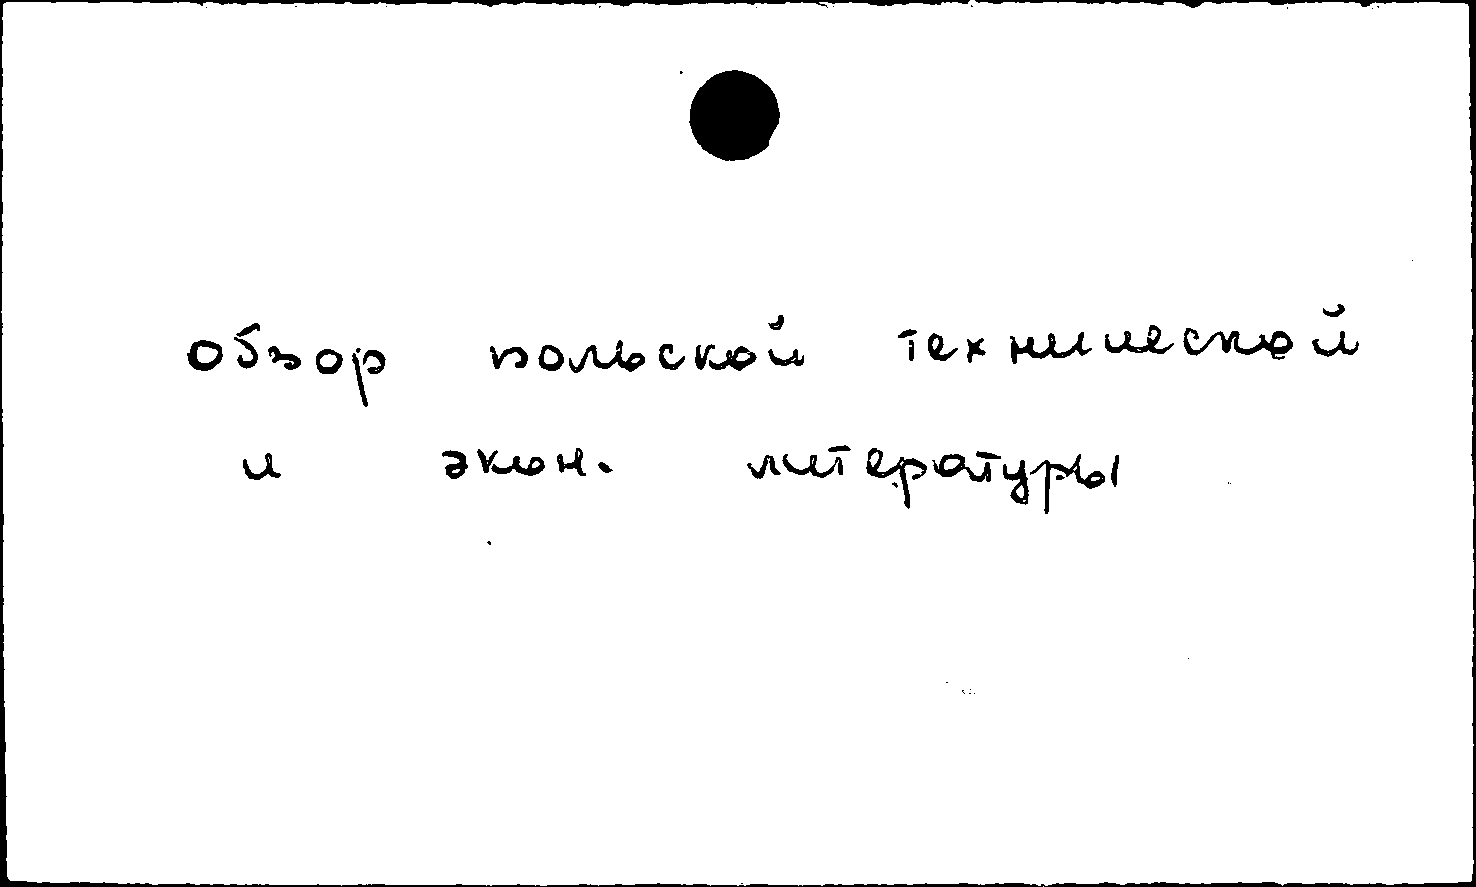 обзор польской технической
и экон. литературы